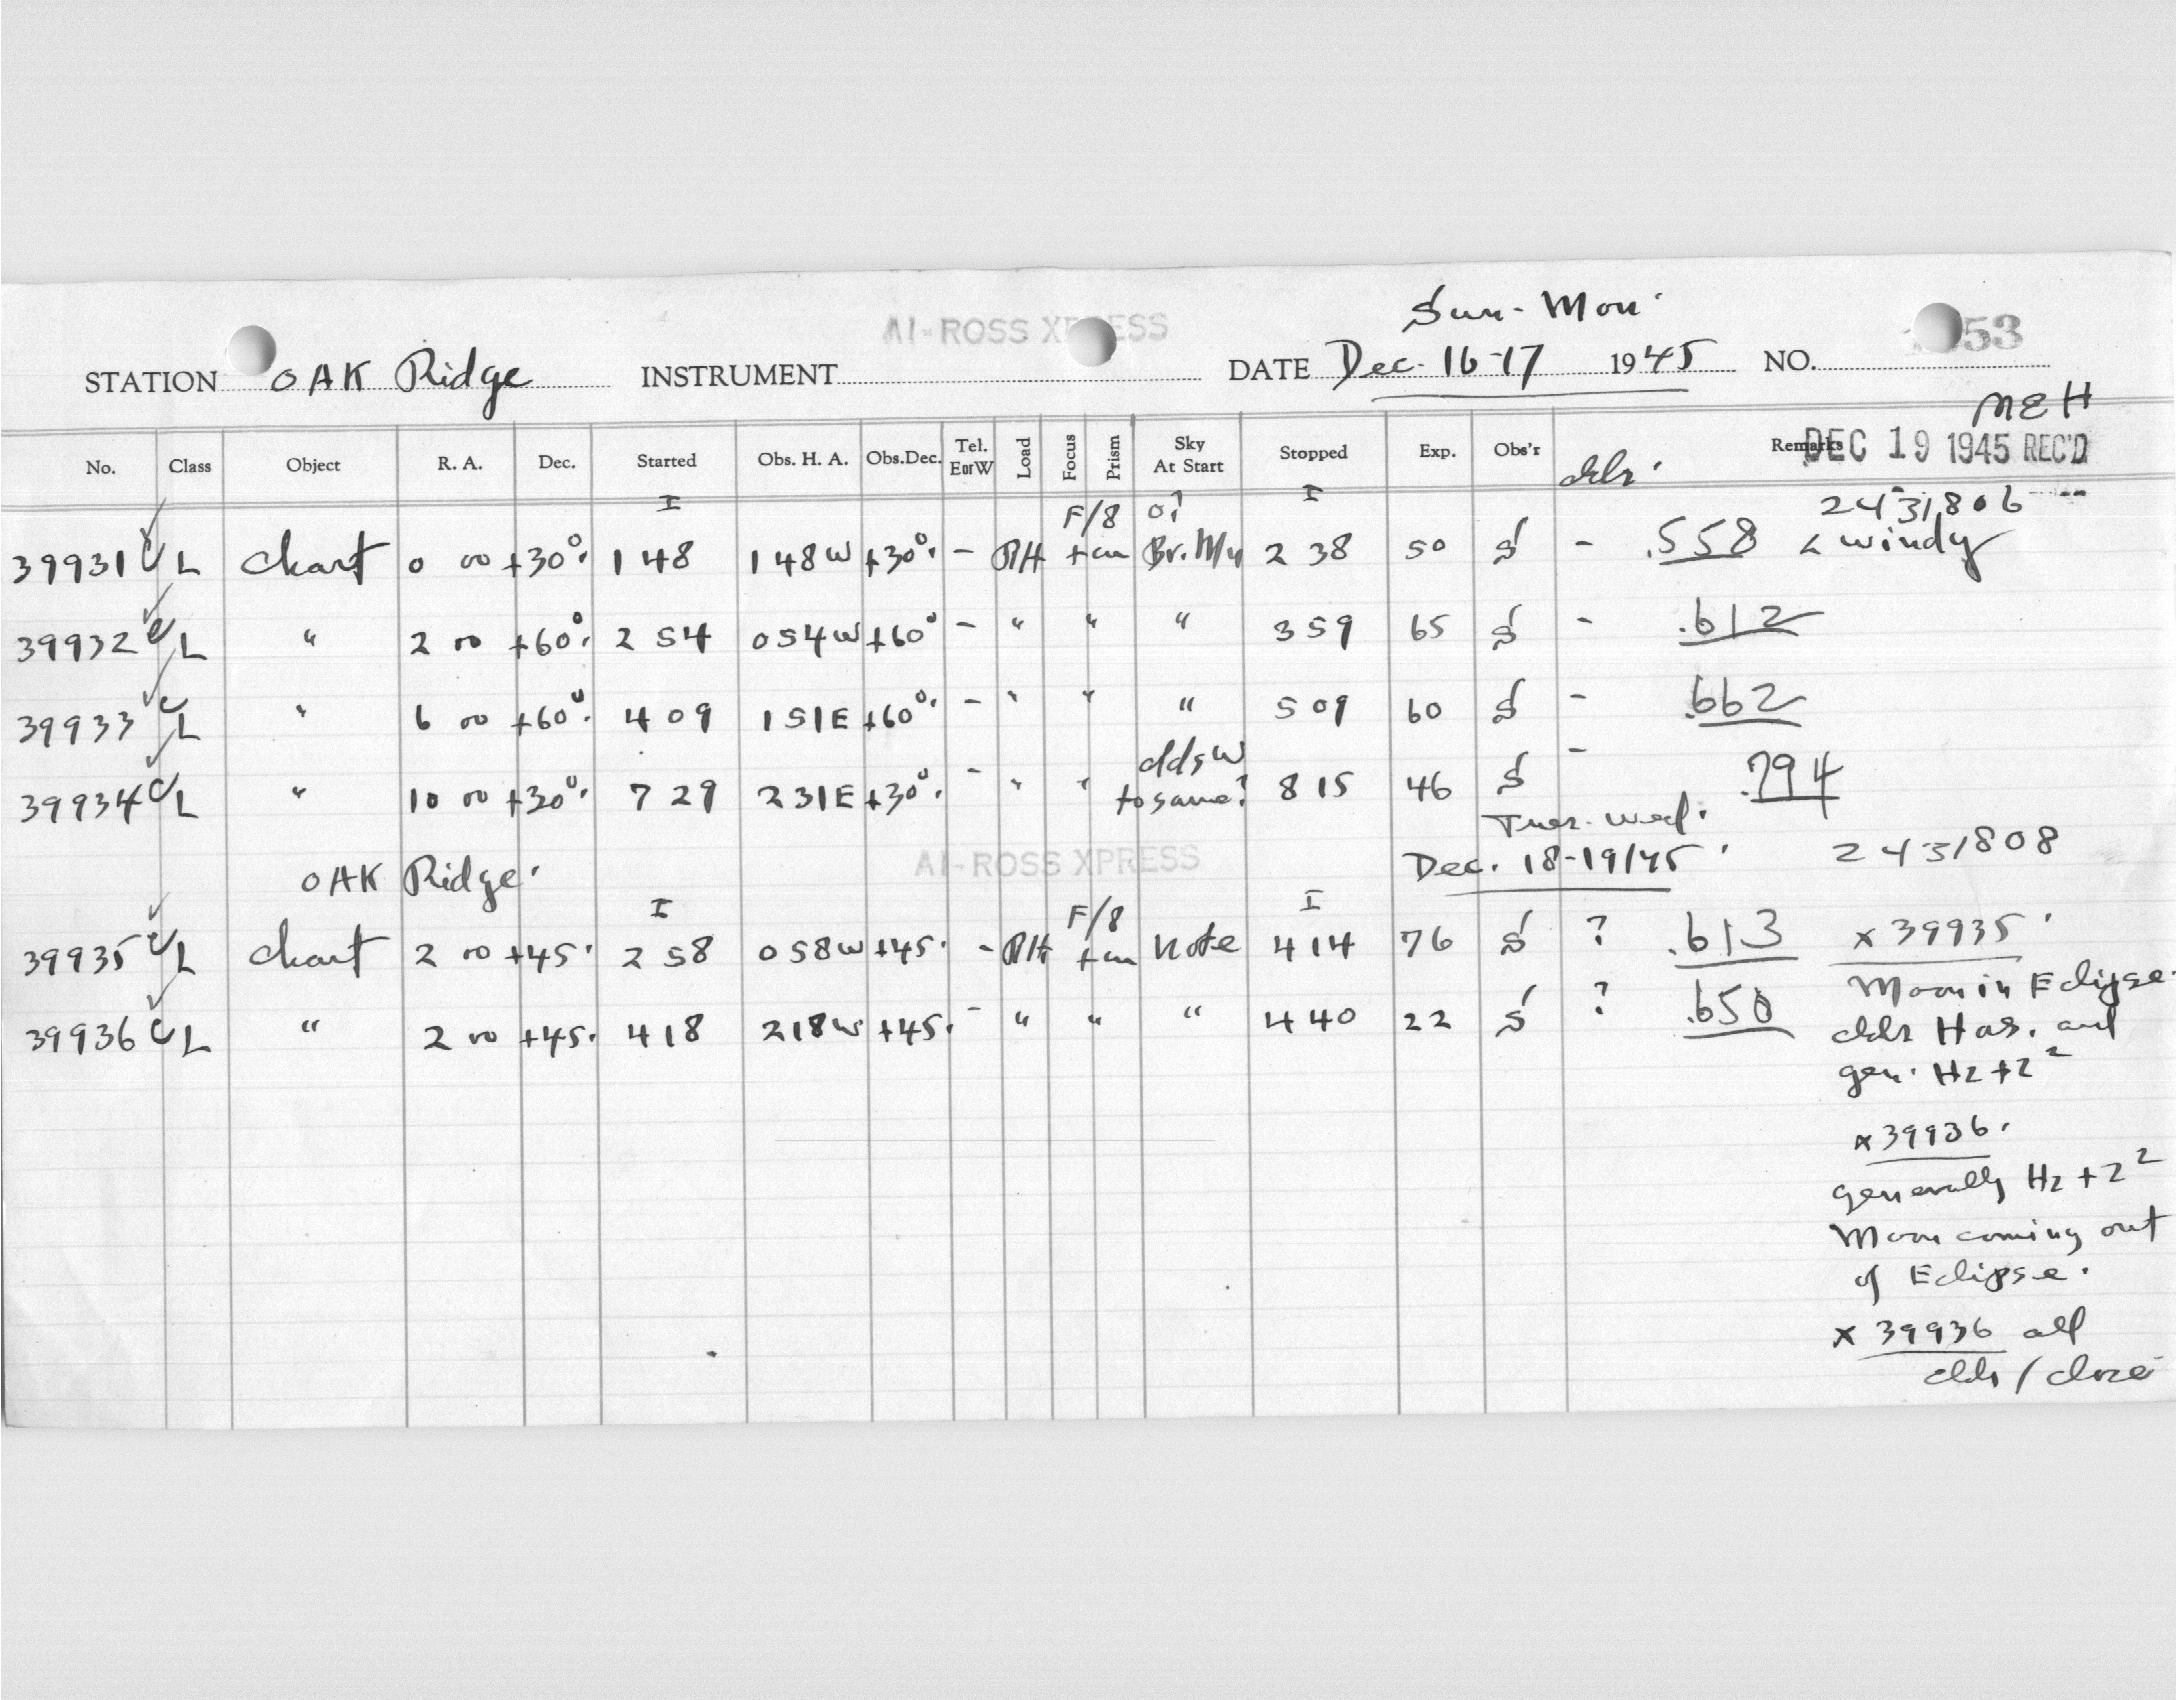 Sun-Mon.
AI-ROSS XPRESS
STATION OAK Ridge INSTRUMENT DATE Dec. 16-17 1945 NO. 53
MEH
No. Class Object R. A. Dec. Started Obs. H. A. Obs.Dec. Tel. E or W Load Focus Prism Sky At Start Stopped Exp. Obs'r Remarks
DEC 19 1945 REC'D
clds.
I F/8 0? I 2431806
39931 C L Chart 0 00 +30°. 1 48 1 48 W +30°. - PH + cm Br. M/4 2 38 50 S - .558 < windy
39932 C L " 2 00 +60°. 2 54 0 54 W +60° - " " " 3 59 65 S - .612
39933 C L " 6 00 +60°. 4 09 1 51 E +60°. - " " " 5 09 60 S - .662
39934 C L " 10 00 +30°. 7 29 2 31 E +30°. - " " clds W to same? 8 15 46 S - .794
Tues-Wed.
OAK Ridge. AI-ROSS XPRESS Dec. 18-19/45. 2431808
I F/8 I
39935 C L Chart 2 00 +45. 2 58 0 58 W +45. - PH + cm Note 4 14 76 S ? .613 x 39935.
39936 C L " 2 00 +45. 4 18 2 18 W +45. - " " " 4 40 22 S ? .650
Moon in Eclipse.
clds Has. and
gen. Hz + 2²
x 39936.
generally Hz + 2²
Moon coming out
of Eclipse.
x 39936 all
clds / close